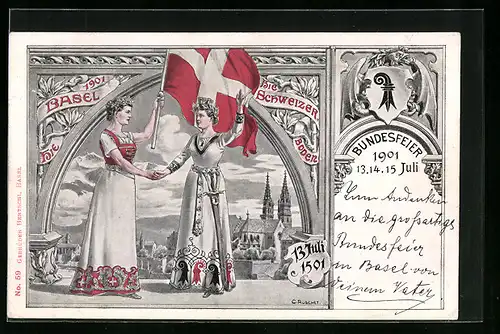 1901
BASEL
DIE
DIE
SCHWEIZER
BODEN
13 Juli
1501
BUNDESFEIER
1901
13. 14. 15 Juli
Zum Andenken
an die großartige
Bundesfeier
in Basel von
deinem Vater
No. 59 GEBRÜDER BENTSCHI, BASEL